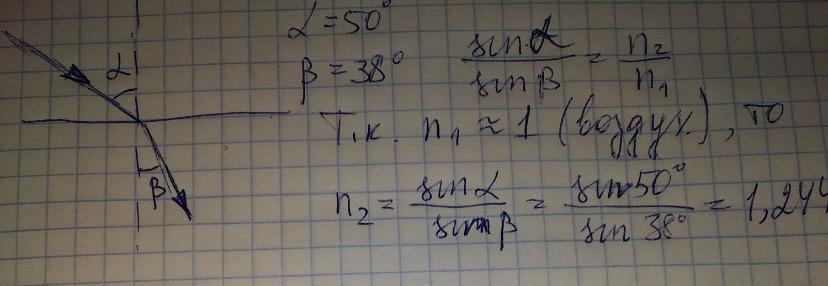 α = 50°
β = 38°
sin α / sin β = n₂ / n₁
Т.к. n₁ ≈ 1 (воздух), то
n₂ = sin α / sin β = sin 50° / sin 38° = 1,244
α
β